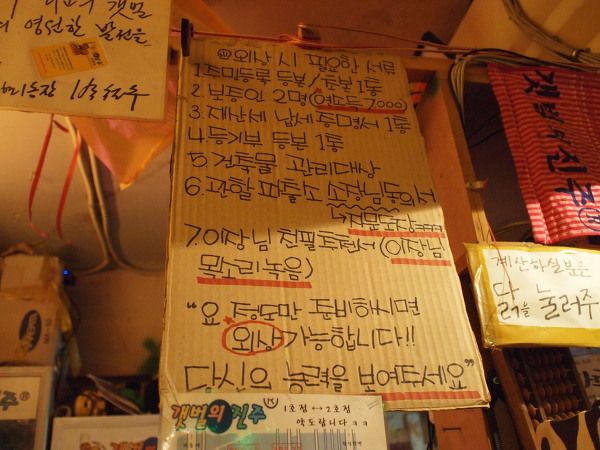 더 영선한 발전을
외상 시 필요한 서류
1. 주민등록 등본/초본 1통
2. 보증인 2명 (연소득 7,000)
3. 재산세 납세 증명서 1통
4. 등기부 등본 1통
5. 건축물 관리대장
6. 관할 파출소 소장님 동의서
7. 이장님 친필 추천서 (이장님
목소리 녹음)
"요 정도만 준비하시면
외상 가능합니다!!
당신의 능력을 보여주세요"
갯벌의 진주
1호점 ↔ 2호점
약도랍니다 ㅋㅋ
갯벌의 진주
계산하실 분은
눌러주